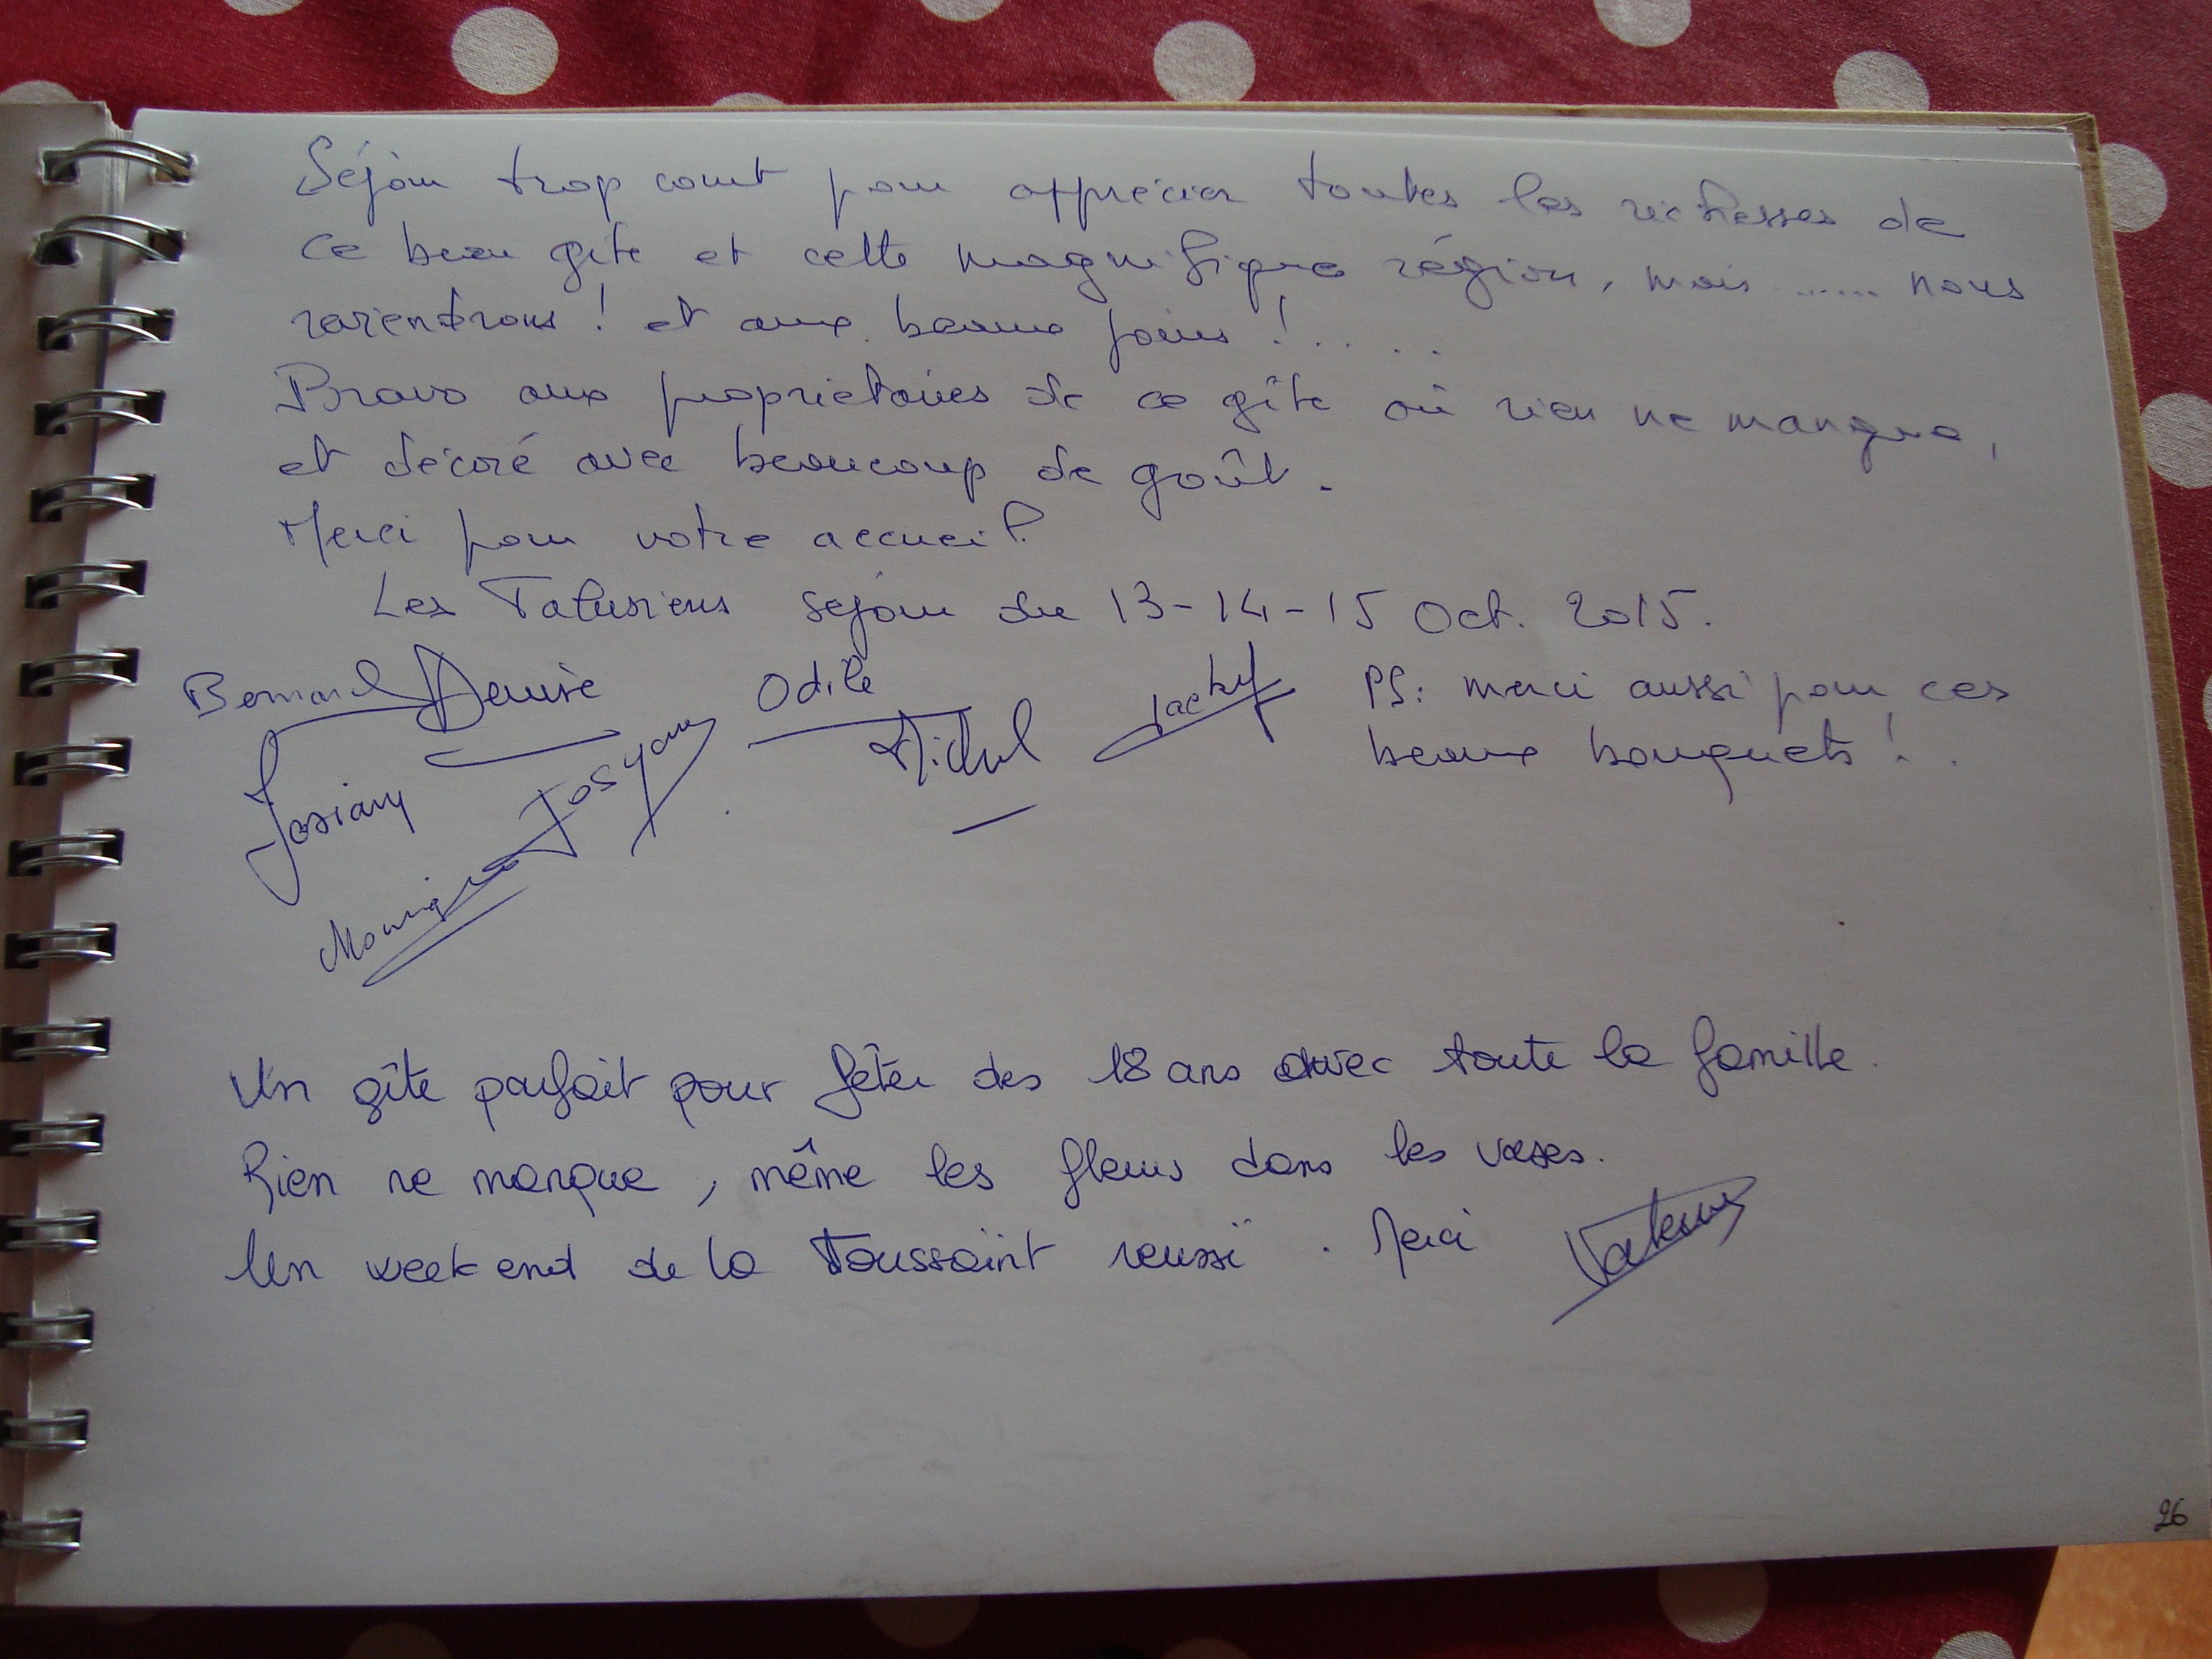 Séjour trop court pour apprécier toutes les richesses de
ce beau gite et cette magnifique région, mais ...... nous
reviendrons ! et aux beaux jours ! .....
Bravo aux propriétaires de ce gîte où rien ne manque,
et décoré avec beaucoup de goût.
Merci pour votre accueil.
Les Talusiens séjour du 13-14-15 Oct. 2015.
Bernard Denise Odile Jacky
Michel
PS: merci aussi pour ces
beaux bouquets !.
Josiane Josyane
Un gîte parfait pour fêter des 18 ans avec toute la famille.
Rien ne manque, même les fleurs dans les vases.
Un week end de la Toussaint reussi. Merci
26